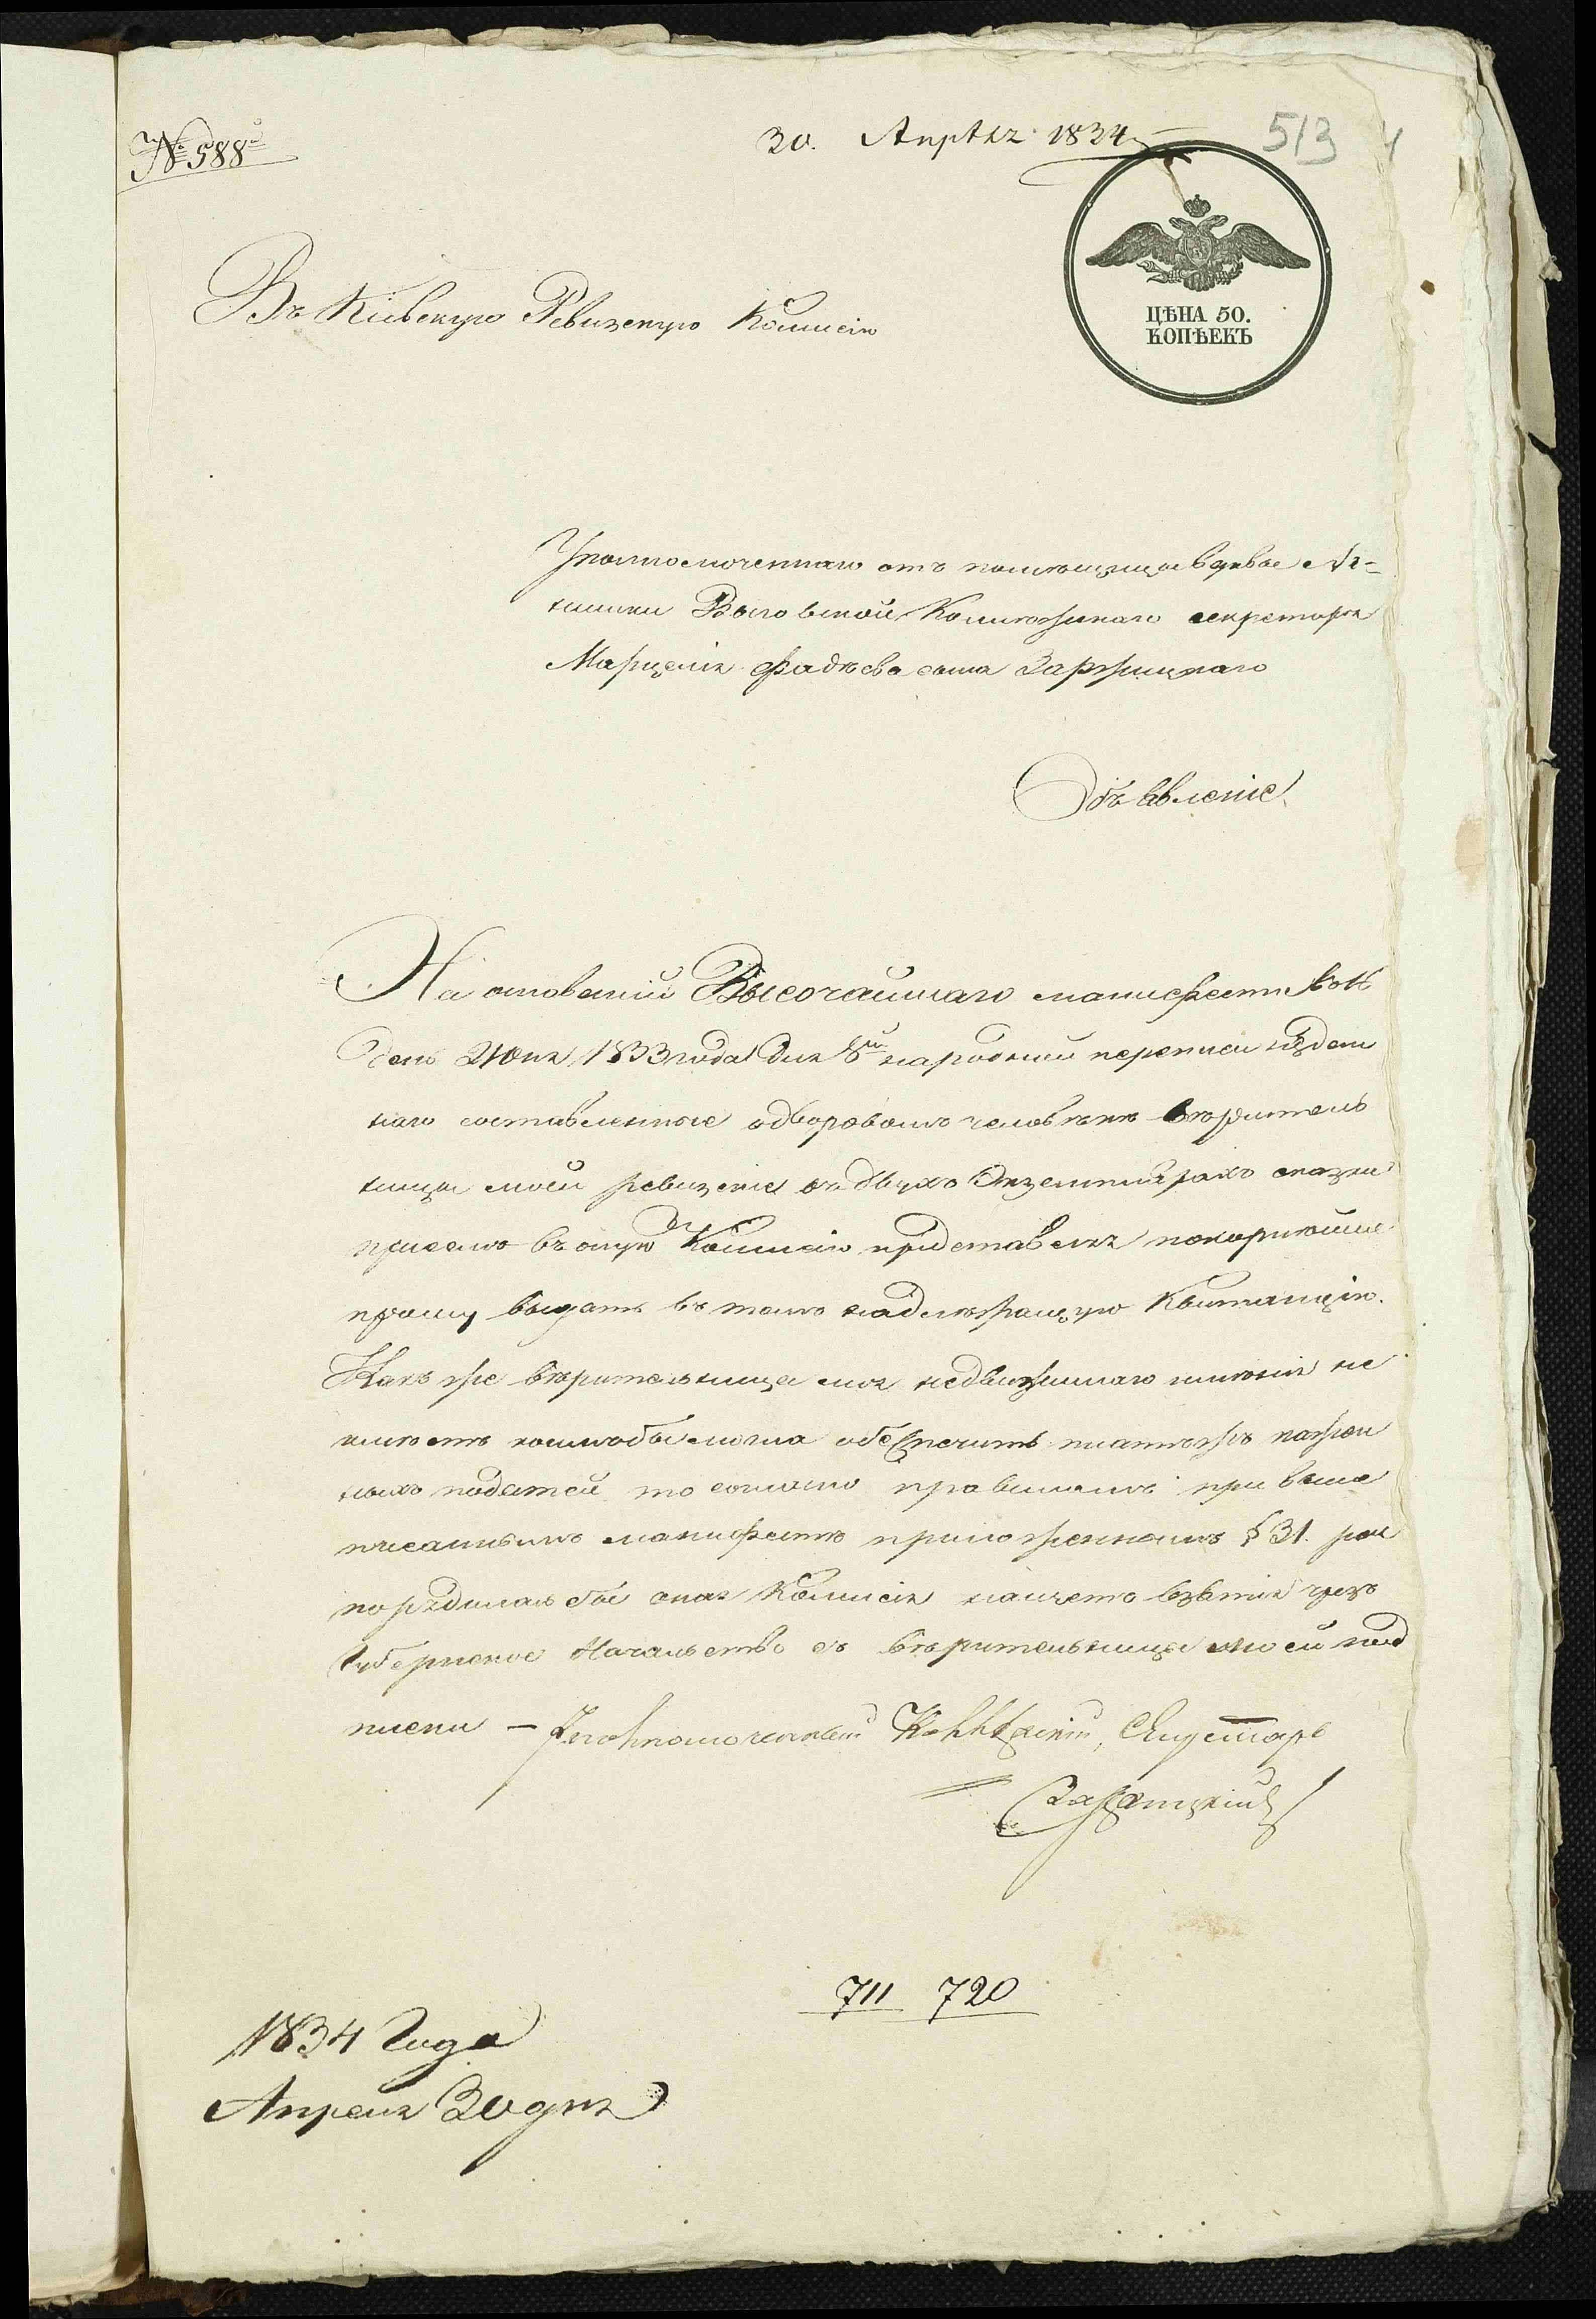 № 588й
30. Апрѣля 1834
513
ЦѢНА 50.
КОПѢЕКЪ
Въ Кіевскую Ревизскую Комисію
Уполномоченнаго отъ помѣщицы вдовы Аг-
нишки Выговской Колижскаго секретаря
Марцелія Фадѣева сына Заржицкаго
Объявленіе
На основаніи Высочайшаго манифеста въ 16
день Іюня 1833 года для 8й народной переписи издан
наго составленные о дворовомъ человѣкѣ вѣритель
ницы моей ревизскіе въ двухъ Экземплярахъ сказки
присемъ въ оную Комисію представляя покорнѣйше
прошу выдать въ томъ надлежащую Квитанцію.
Какъ же вѣрительница моя недвижимаго имѣнія не
имѣетъ коимъ бы могла обеспечить платежъ казен
ныхъ податей то согласно правиламъ при выше
писанномъ манифестѣ приложеннымъ § 31. рас
порядилась бы оная Комисія насчетъ взятія чрезъ
Губернское Начальство съ вѣрительницы моей под
писки — Уполномоченный Коллежскій Секретарь
Заржицкій
711 720
1834 Года
Апреля 30 дня